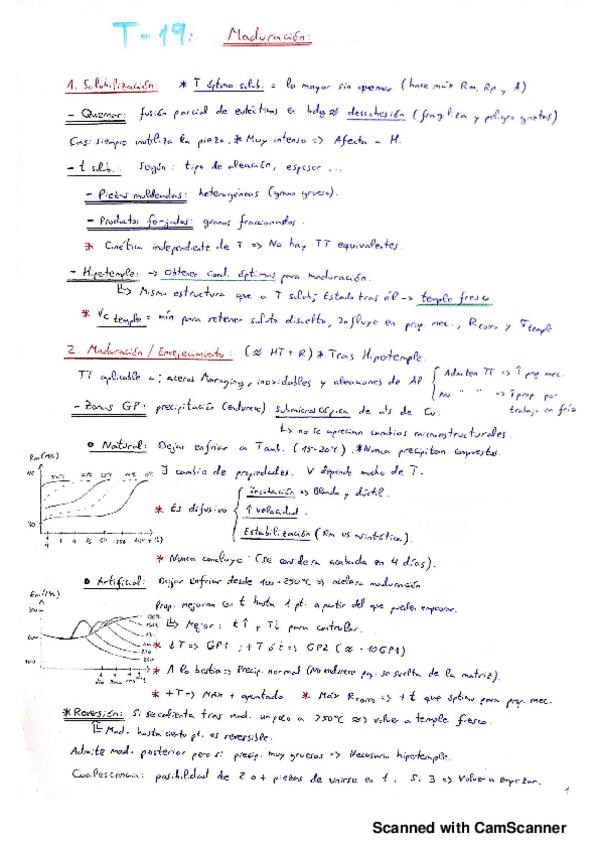 T-19: Maduración:
1. Solubilización: * T óptima solub. = la mayor sin quemar (hace máx Rm, Rp y A)
- Quemar: fusión parcial de eutécticos en bdg ≈ descohesión (fragiliza y peligro grietas)
Casi siempre inutiliza la pieza. * Muy intenso => Afecta a H.
- t solub.: según: tipo de aleación, espesor ...
- Piezas moldeadas: heterogéneas (grano grueso).
- Productos forjados: granos fraccionados.
* Cinética independiente de T => No hay TT equivalentes.
- Hipertemple: -> Obtener cond. óptimas para maduración.
Misma estructura que a T solub; Estado tras él -> temple fresco
* Vc temple = mín para retener soluto disuelto, Influye en prop. mec., Rcorro y temple
2. Maduración / Envejecimiento: (≈ HT + R) * Tras Hipertemple.
TT aplicable a: aceros Maraging, inoxidables y aleaciones de Al
Admiten TT => ↑ prop. mec.
No " " => ↑ prop por trabajo en frío
- Zonas GP: precipitación (endurece) submicroscópica de ats de Cu.
no se aprecian cambios microestructurales.
• Natural: Dejar enfriar a Tamb. (15-20°C). * Nunca precipitan compuestos.
Rm (MPa)
cambio de propiedades. V depende mucho de T.
* Es difusivo
incubación => Blanda y dúctil.
↑ velocidad.
Estabilización (Rm vs asintótica).
* Nunca concluye (se considera acabada en 4 días).
• Artificial: Dejar enfriar desde 100-250°C => acelera maduración
Prop. mejoran con t hasta 1 pt. a partir del que pueden empeorar.
Mejor: t↑ y T↓ para controlar.
* ↓T => GP1; +T ó t => GP2 (≈ -10GP1)
* A lo bestia => Precip. normal (No endurece pq. se suelta de la matriz).
* +T -> Máx + apuntado * Máx Rcorro => +t que óptimo para prop. mec.
* Reversión: Si se calienta tras mad. un poco a >250°C ≈> volver a temple fresco.
Mad. hasta cierto pt. es reversible.
Admite mad. posterior pero si precip. muy gruesos => Necesario hipertemple.
Coalescencia: posibilidad de 2 o + piezas de unirse en 1. Si 3 => Volver a empezar.
1
Scanned with CamScanner